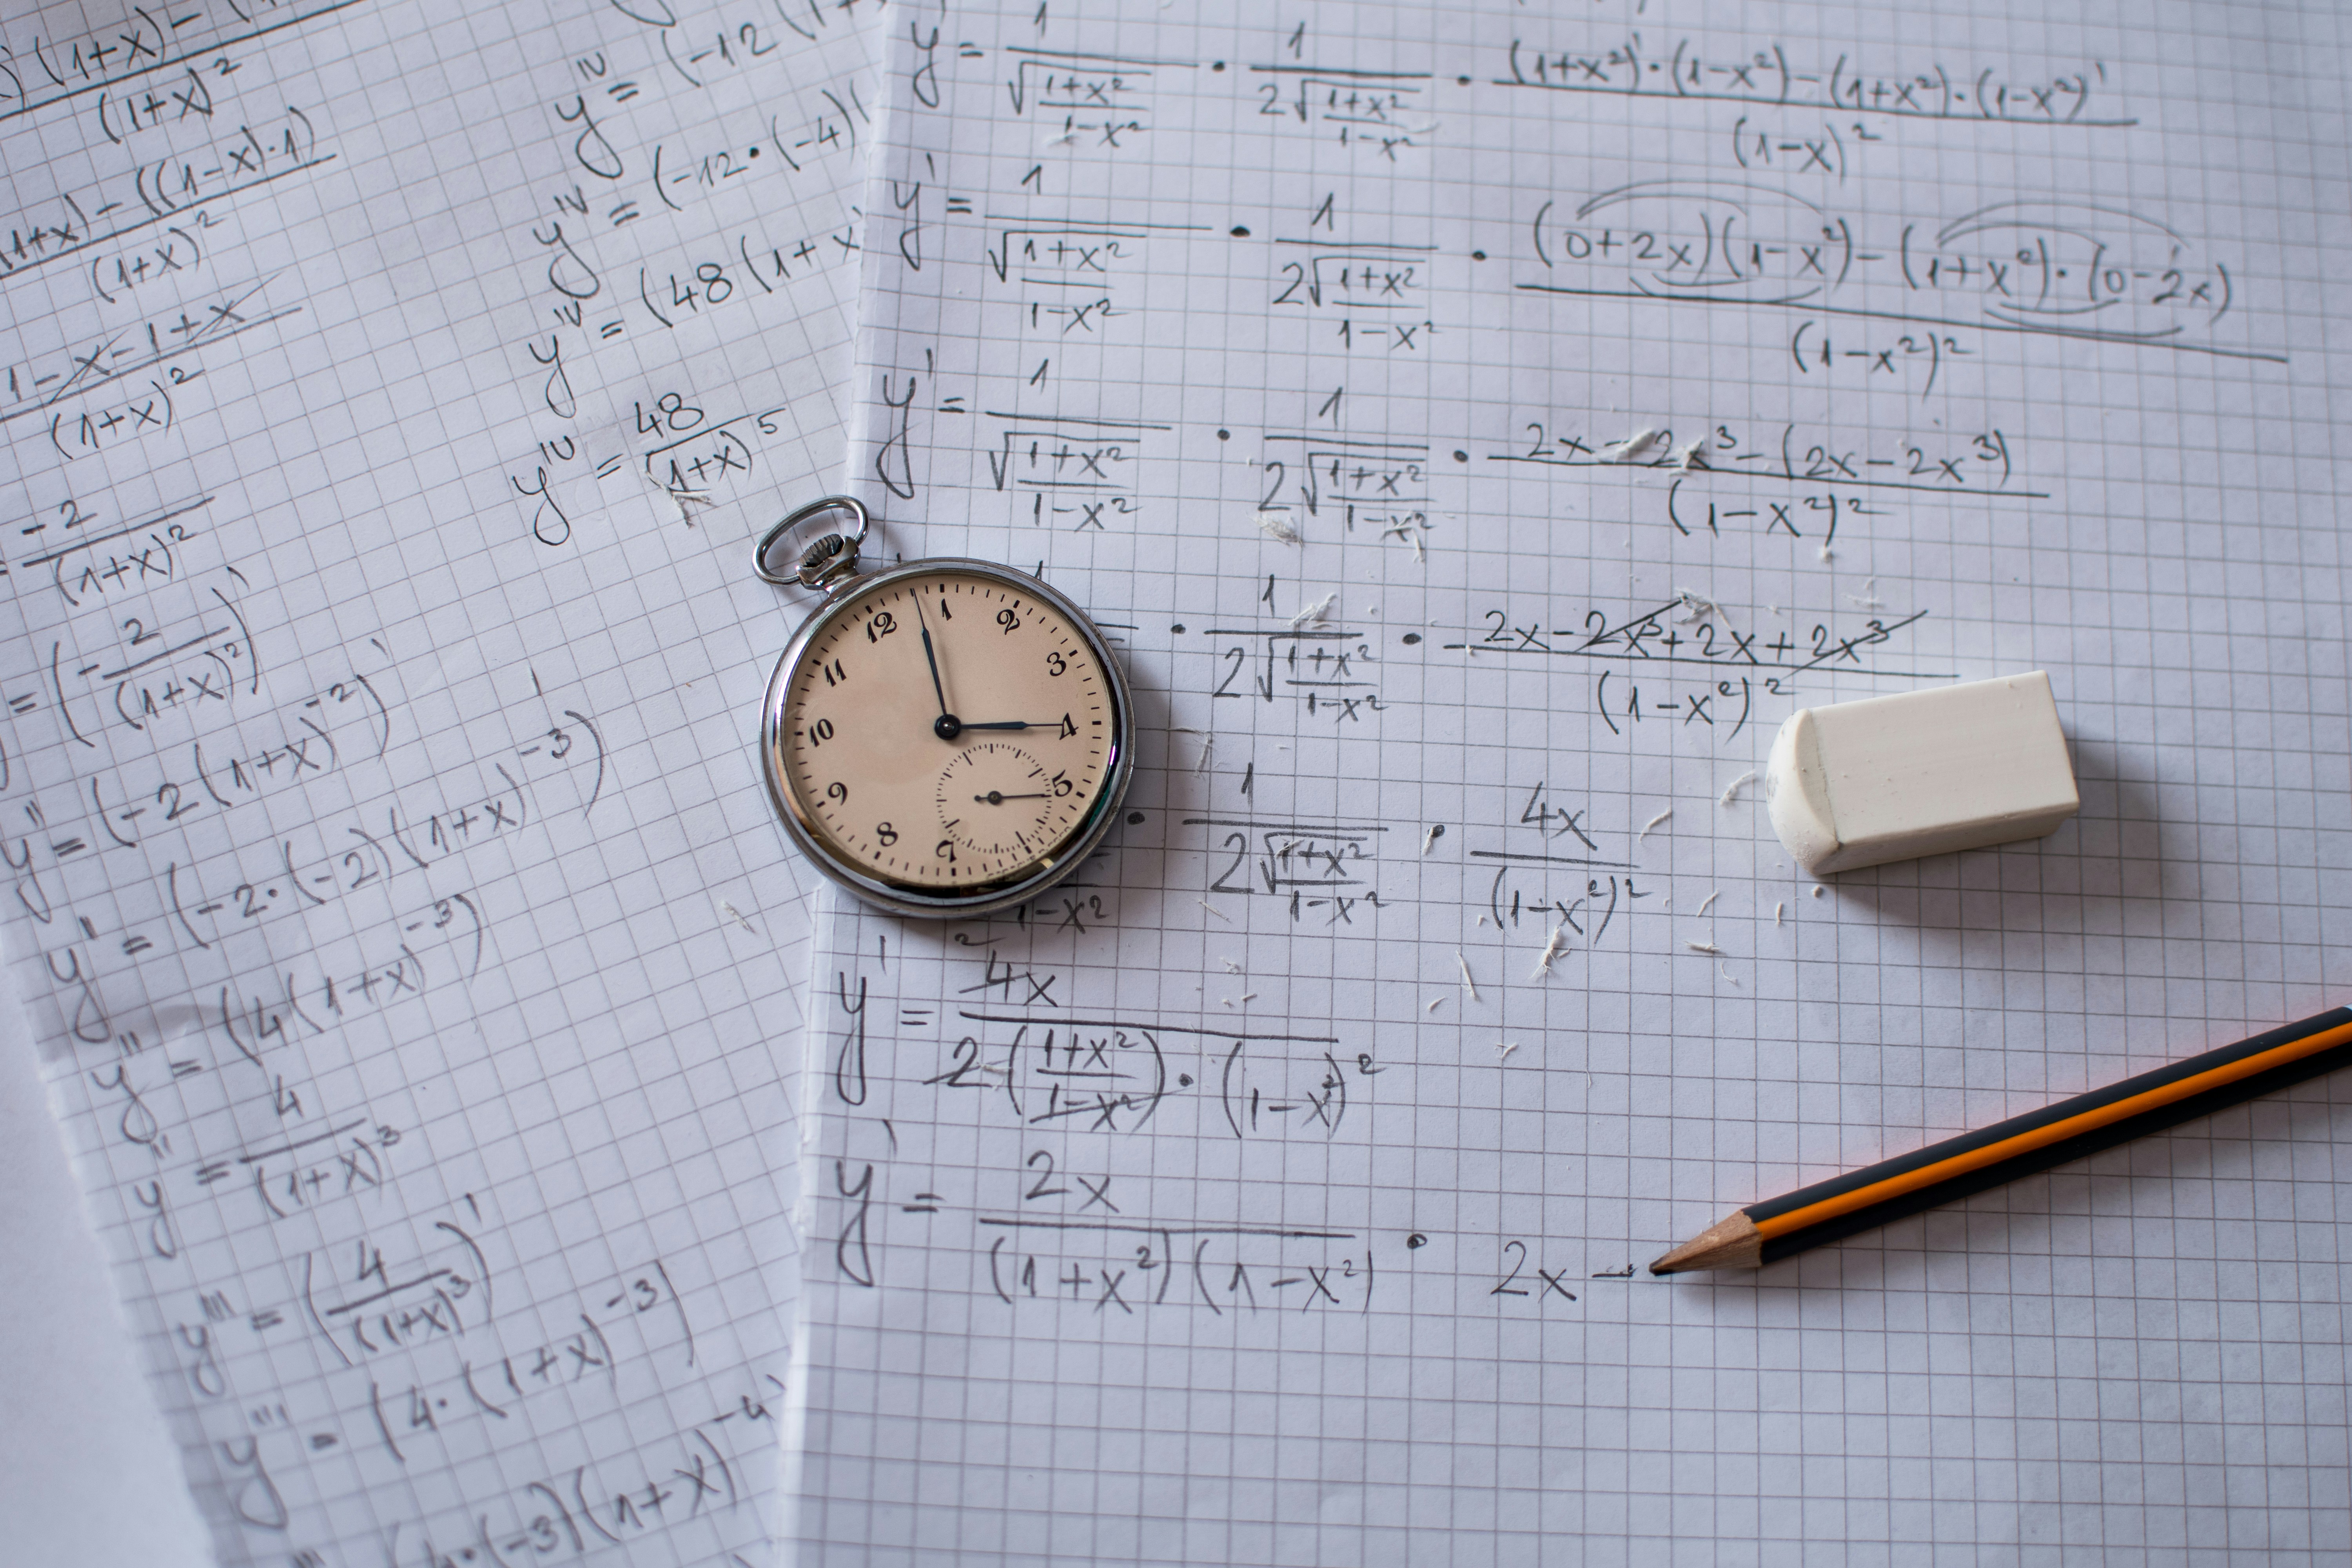 (1+x)-
(1+x)²
1+x)-((1-x)·1)
(1+x)²
1-x-1+x
(1+x)²
-2
(1+x)²
= (- 2/(1+x)²)'
y''= (-2(1+x)⁻²)'
y' = (-2·(-2)(1+x)⁻³)'
y'' = (4(1+x)⁻³)
y'' = 4/(1+x)³
y''' = (4/(1+x)³)'
y''' = (4·(1+x)⁻³)
·(-3)(1+x)⁻⁴
yᴵⱽ = (-12(1+
yᴵⱽ = (-12·(-4)(
yᴵⱽ = (48(1+x
yᴵⱽ = 48/(1+x)⁵
y'= 1/√((1+x²)/(1-x²)) · 1/(2√((1+x²)/(1-x²))) · ((1+x²)'·(1-x²)-(1+x²)·(1-x²)')/(1-x)²
y'= 1/√((1+x²)/(1-x²)) · 1/(2√((1+x²)/(1-x²))) · ((0+2x)(1-x²)-(1+x²)·(0-2x))/(1-x²)²
y'= 1/√((1+x²)/(1-x²)) · 1/(2√((1+x²)/(1-x²))) · (2x-2x³-(2x-2x³))/(1-x²)²
1 · 1/(2√((1+x²)/(1-x²))) · (2x-2x³+2x+2x³)/(1-x²)²
1-x² · 1/(2√((1+x²)/(1-x²))) · 4x/(1-x²)²
2
y' = 4x/(2·((1+x²)/(1-x²))·(1-x²)²)
y' = 2x/((1+x²)(1-x²)) · 2x-
12 1 2 3 4 5 7 8 9 10 11